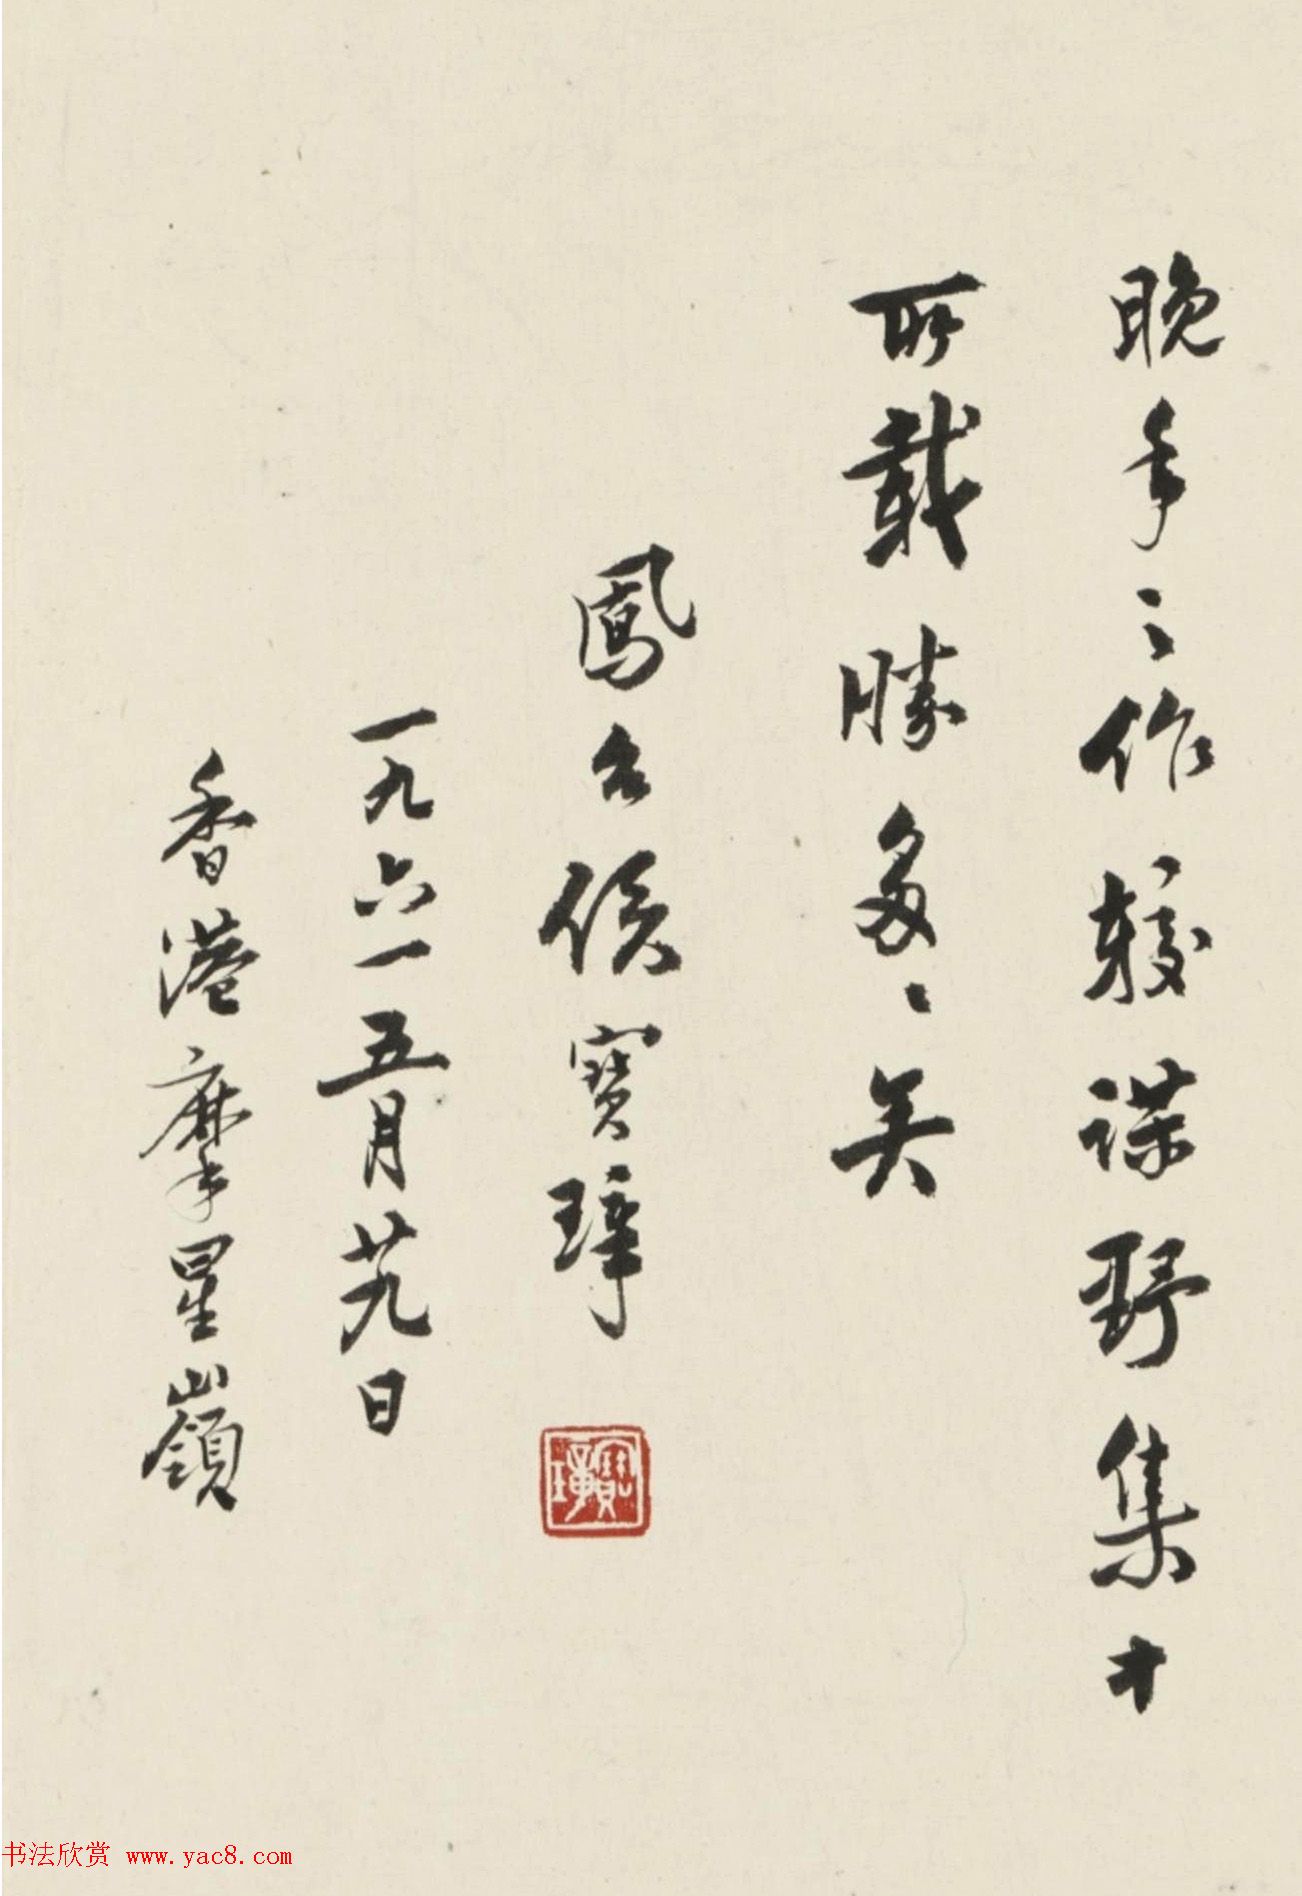 晚年之作較謀野集中
所載勝多多矣
鳳台侯寶璋
一九六一五月廿九日
香港摩星嶺
寶璋
书法欣赏 www.yac8.com